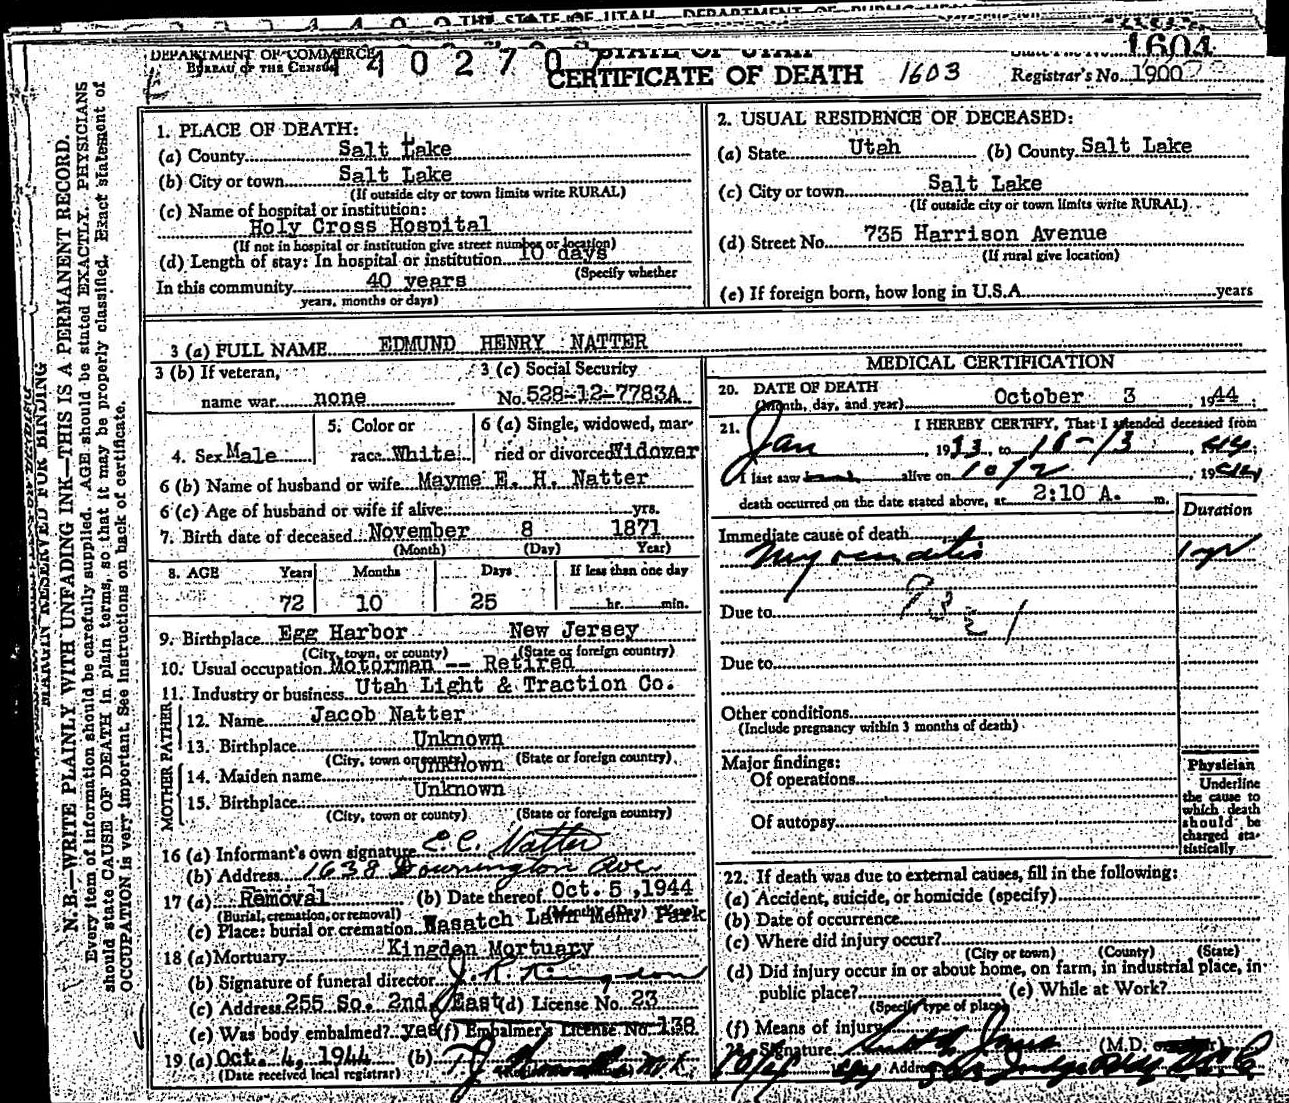 THE STATE OF UTAH DEPARTMENT OF
DEPARTMENT OF COMMERCE
BUREAU OF THE CENSUS
4 4 0 2 7 0
STATE OF UTAH
CERTIFICATE OF DEATH 1603
1604
Registrar's No. 1900
MARGIN RESERVED FOR BINDING
N. B.—WRITE PLAINLY WITH UNFADING INK—THIS IS A PERMANENT RECORD.
Every item of information should be carefully supplied. AGE should be stated EXACTLY. PHYSICIANS
should state CAUSE OF DEATH in plain terms, so that it may be properly classified. Exact statement of
OCCUPATION is very important. See instructions on back of certificate.
1. PLACE OF DEATH:
(a) County Salt Lake
(b) City or town Salt Lake
(If outside city or town limits write RURAL)
(c) Name of hospital or institution:
Holy Cross Hospital
(If not in hospital or institution give street number or location)
(d) Length of stay: In hospital or institution 10 days
(Specify whether
In this community 40 years
years, months or days)
2. USUAL RESIDENCE OF DECEASED:
(a) State Utah (b) County Salt Lake
(c) City or town Salt Lake
(If outside city or town limits write RURAL)
(d) Street No. 735 Harrison Avenue
(If rural give location)
(e) If foreign born, how long in U.S.A. years
3 (a) FULL NAME EDMUND HENRY NATTER
3 (b) If veteran,
name war none
3 (c) Social Security
No. 528-12-7783A
4. Sex Male
5. Color or
race White
6 (a) Single, widowed, mar-
ried or divorced Widower
6 (b) Name of husband or wife Mayme E. H. Natter
6 (c) Age of husband or wife if alive yrs.
7. Birth date of deceased November 8 1871
(Month) (Day) Year)
8. AGE Years Months Days If less than one day
72 10 25 hr. min.
9. Birthplace Egg Harbor New Jersey
(City, town, or county) (State or foreign country)
10. Usual occupation Motorman -- Retired
11. Industry or business Utah Light & Traction Co.
FATHER
12. Name Jacob Natter
13. Birthplace Unknown
(City, town or county) (State or foreign country)
MOTHER
14. Maiden name Unknown
15. Birthplace Unknown
(City, town or county) (State or foreign country)
16 (a) Informant's own signature E. C. Natter
(b) Address 1638 Downington Ave
17 (a) Removal (b) Date thereof Oct. 5, 1944
(Burial, cremation, or removal) (Month) (Day)
(c) Place: burial or cremation Wasatch Lawn Mem. Park
18 (a) Mortuary Kingdon Mortuary
(b) Signature of funeral director J. R. Kingdon
(c) Address 255 So. 2nd East (d) License No. 23
(e) Was body embalmed? yes (f) Embalmer's License No. 138
19 (a) Oct. 4, 1944 (b)
(Date received local registrar)
MEDICAL CERTIFICATION
20. DATE OF DEATH
(Month, day, and year) October 3, 1944
21. I HEREBY CERTIFY, That I attended deceased from
Jan, 19 to 10-3, 1944
I last saw alive on 10/2, 1944
death occurred on the date stated above, at 2:10 A. m.
Duration
Immediate cause of death
Myocarditis 1 yr
Due to
Due to
Other conditions
(Include pregnancy within 3 months of death)
Major findings:
Of operations
Of autopsy
Physician
Underline
the cause to
which death
should be
charged sta-
tistically
22. If death was due to external causes, fill in the following:
(a) Accident, suicide, or homicide (specify)
(b) Date of occurrence
(c) Where did injury occur?
(City or town) (County) (State)
(d) Did injury occur in or about home, on farm, in industrial place, in
public place? (e) While at Work?
(Specify type of place)
(f) Means of injury
23. Signature (M.D.
Address Judge Bldg